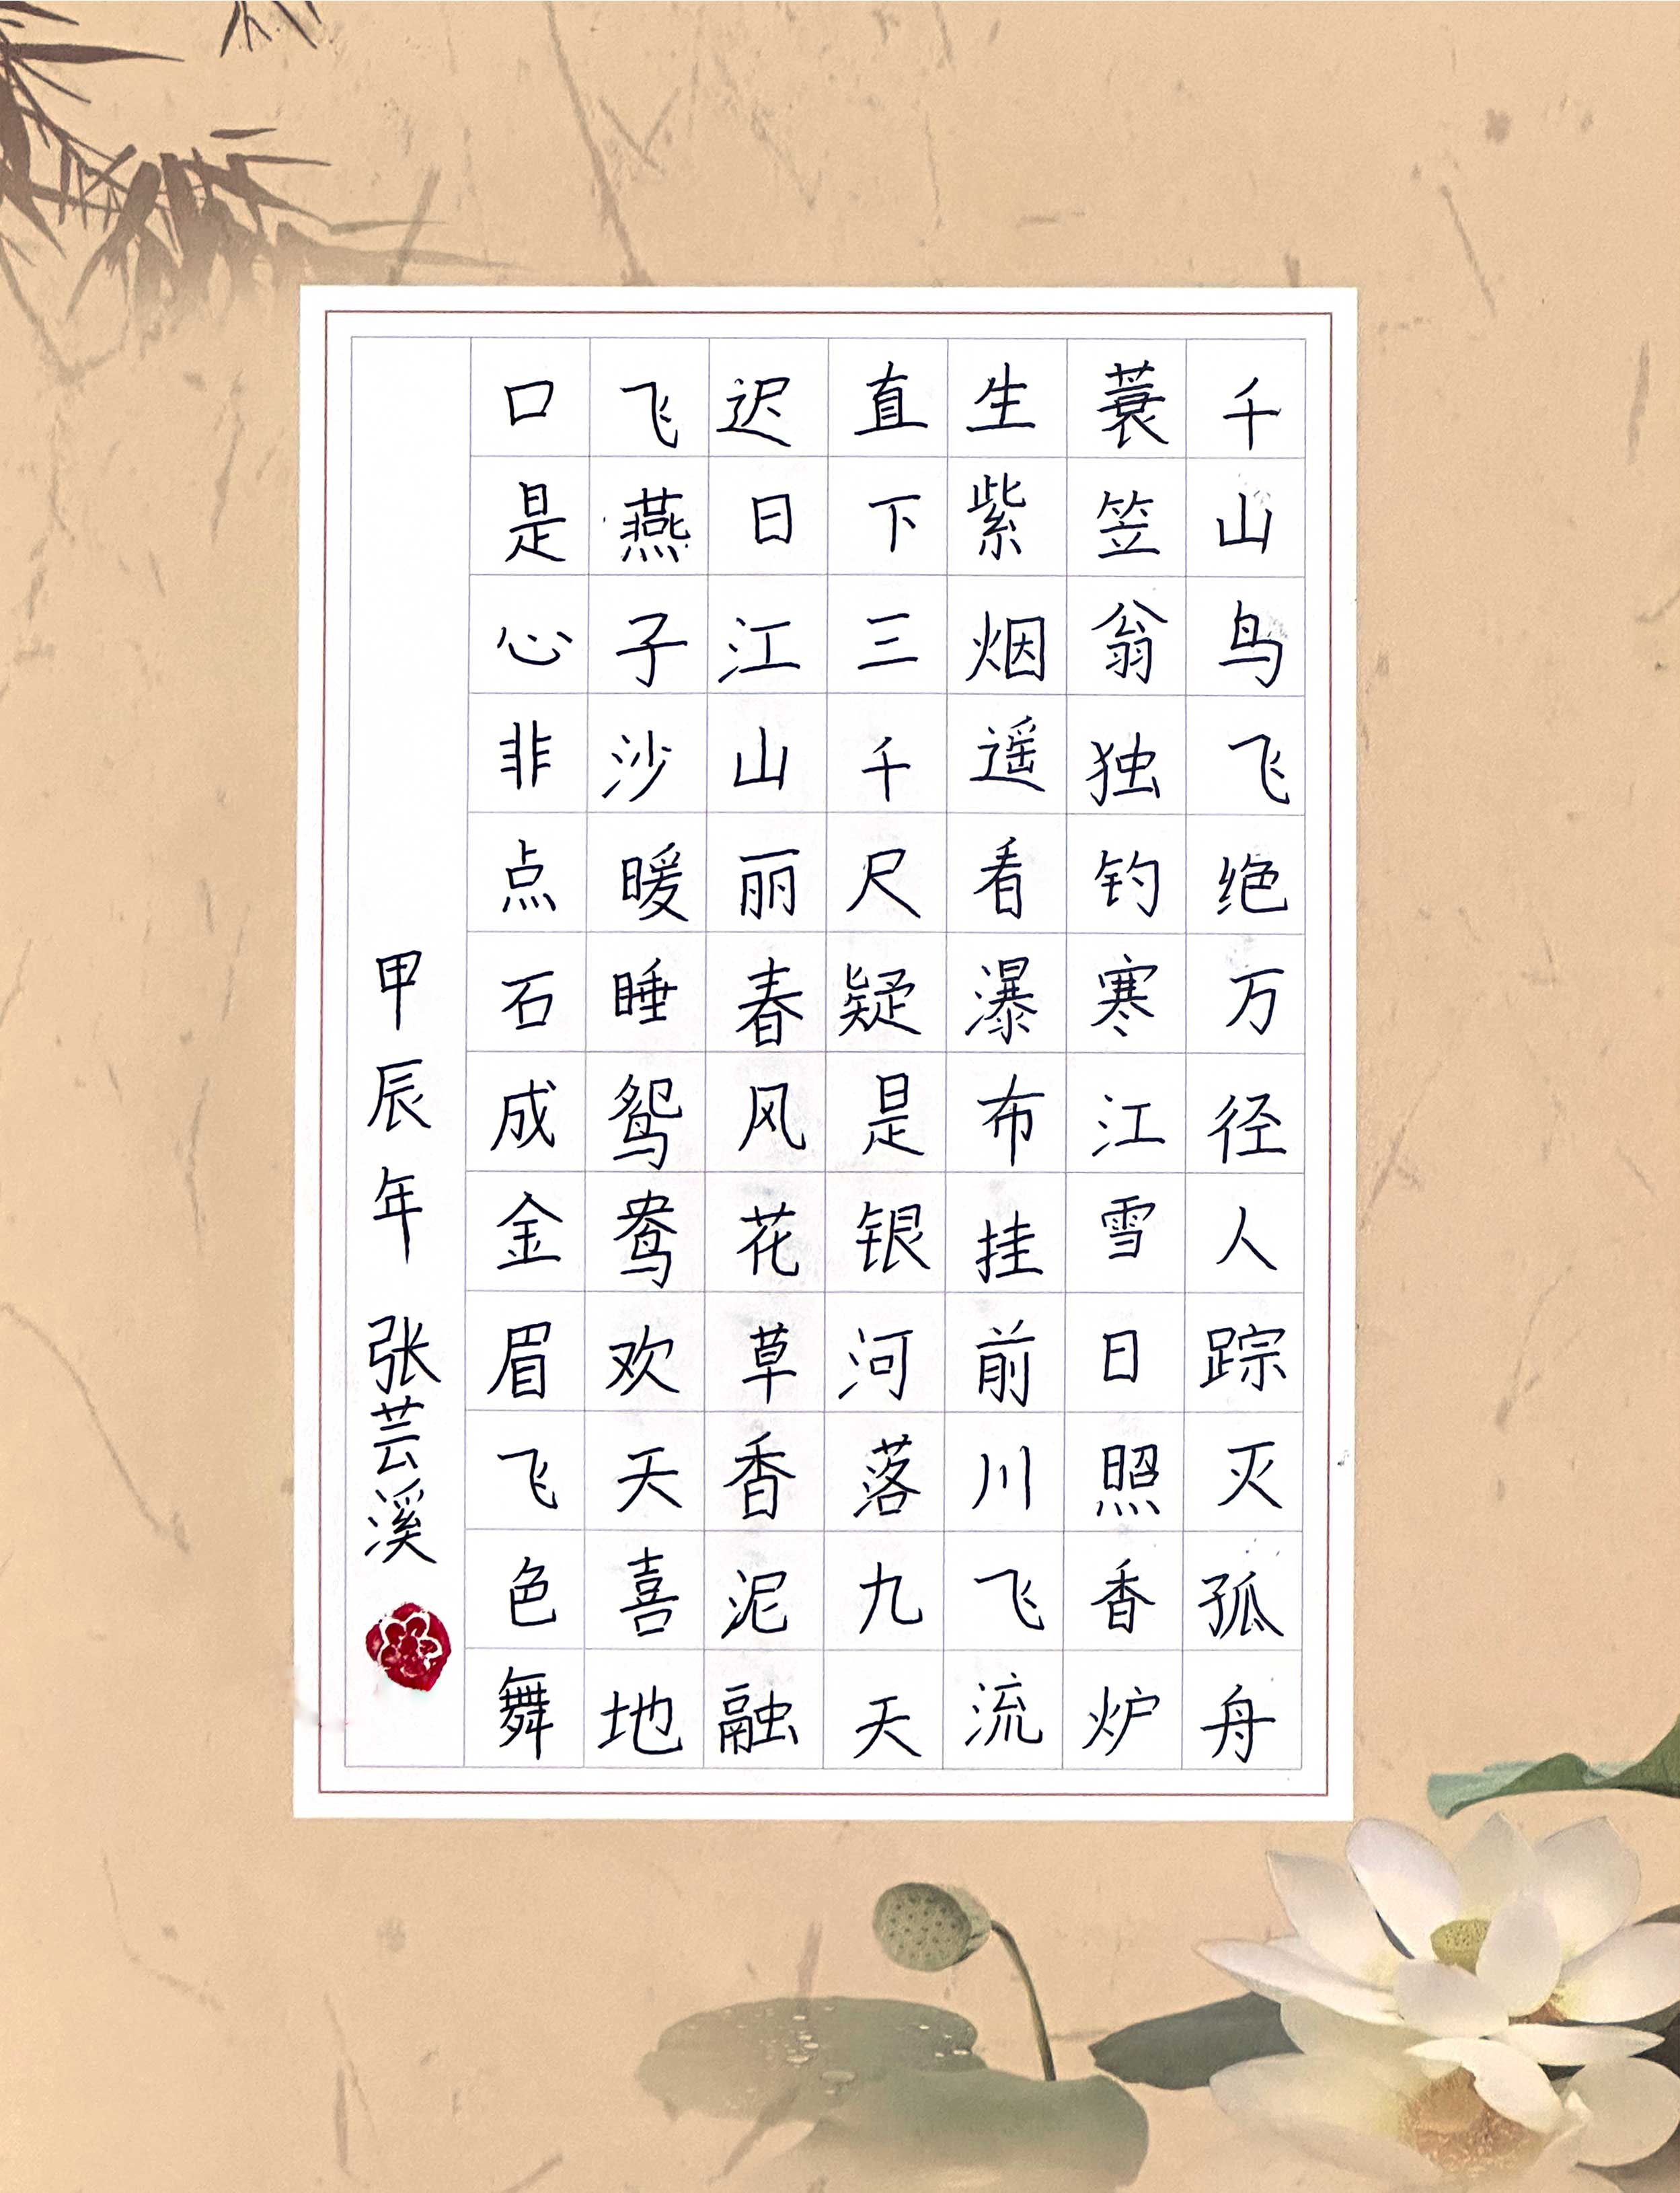 千山鸟飞绝万径人踪灭孤舟
蓑笠翁独钓寒江雪日照香炉
生紫烟遥看瀑布挂前川飞流
直下三千尺疑是银河落九天
迟日江山丽春风花草香泥融
飞燕子沙暖睡鸳鸯欢天喜地
口是心非点石成金眉飞色舞
甲辰年 张芸溪